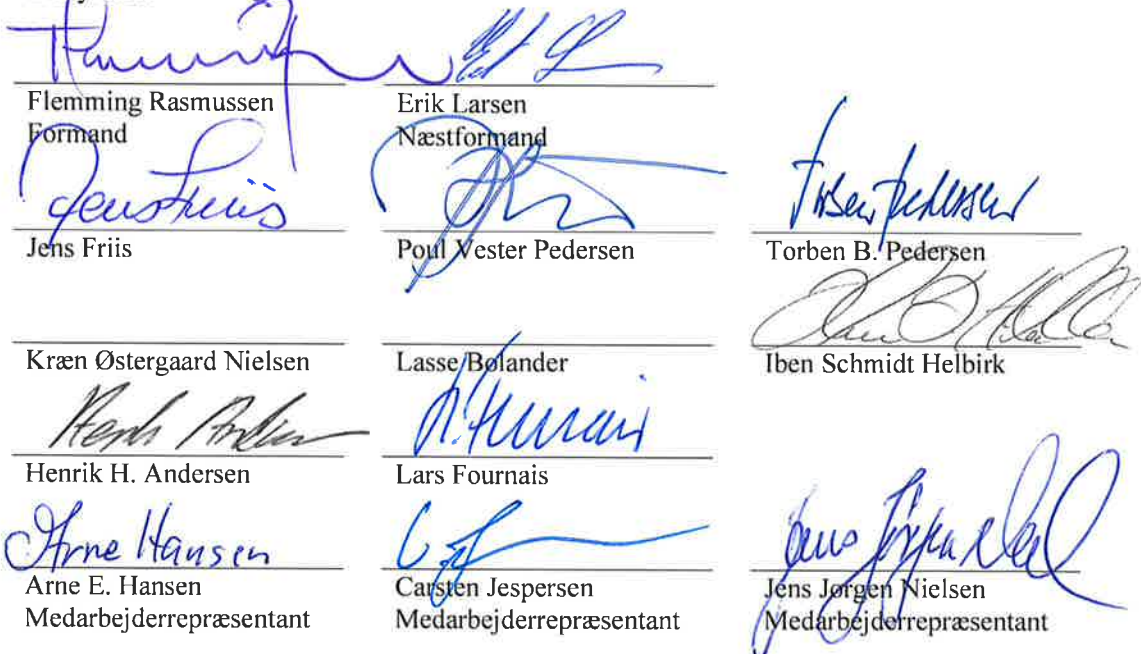 Flemming Rasmussen
Formand
Erik Larsen
Næstformand
Jens Friis
Jens Friis
Poul Vester Pedersen
Torben Pedersen
Torben B. Pedersen
Kræn Østergaard Nielsen
Lasse Bolander
Iben Schmidt Helbirk
Henrik H. Andersen
Lars Fournais
Arne Hansen
Arne E. Hansen
Medarbejderrepræsentant
Carsten Jespersen
Medarbejderrepræsentant
Jens Jørgen Nielsen
Medarbejderrepræsentant